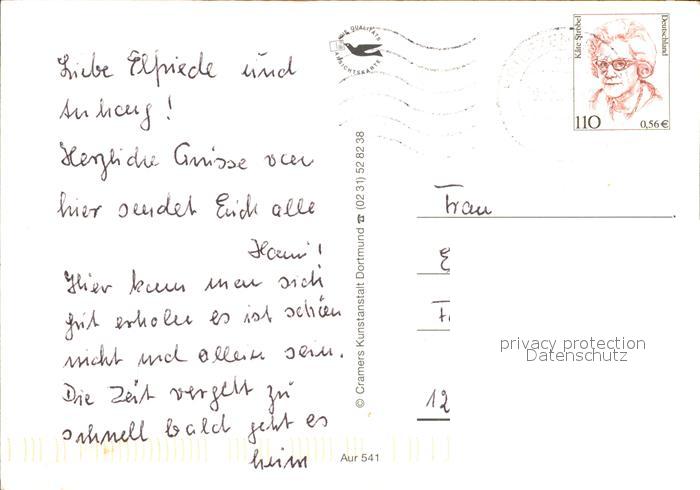 Liebe Elfriede und
Anhang!
Herzliche Grüsse von
hier sendet Euch alle
Hanni!
Hier kann man sich
gut erholen es ist schön
nicht und allein sein.
Die Zeit vergeht zu
schnell bald geht es
heim
QUALITÄTS
ANSICHTSKARTE
© Cramers Kunstanstalt Dortmund ☎ (02 31) 52 82 38
Aur 541
Käte Strobel
Deutschland
110 0,56 €
Frau
E
F.
12
privacy protection
Datenschutz